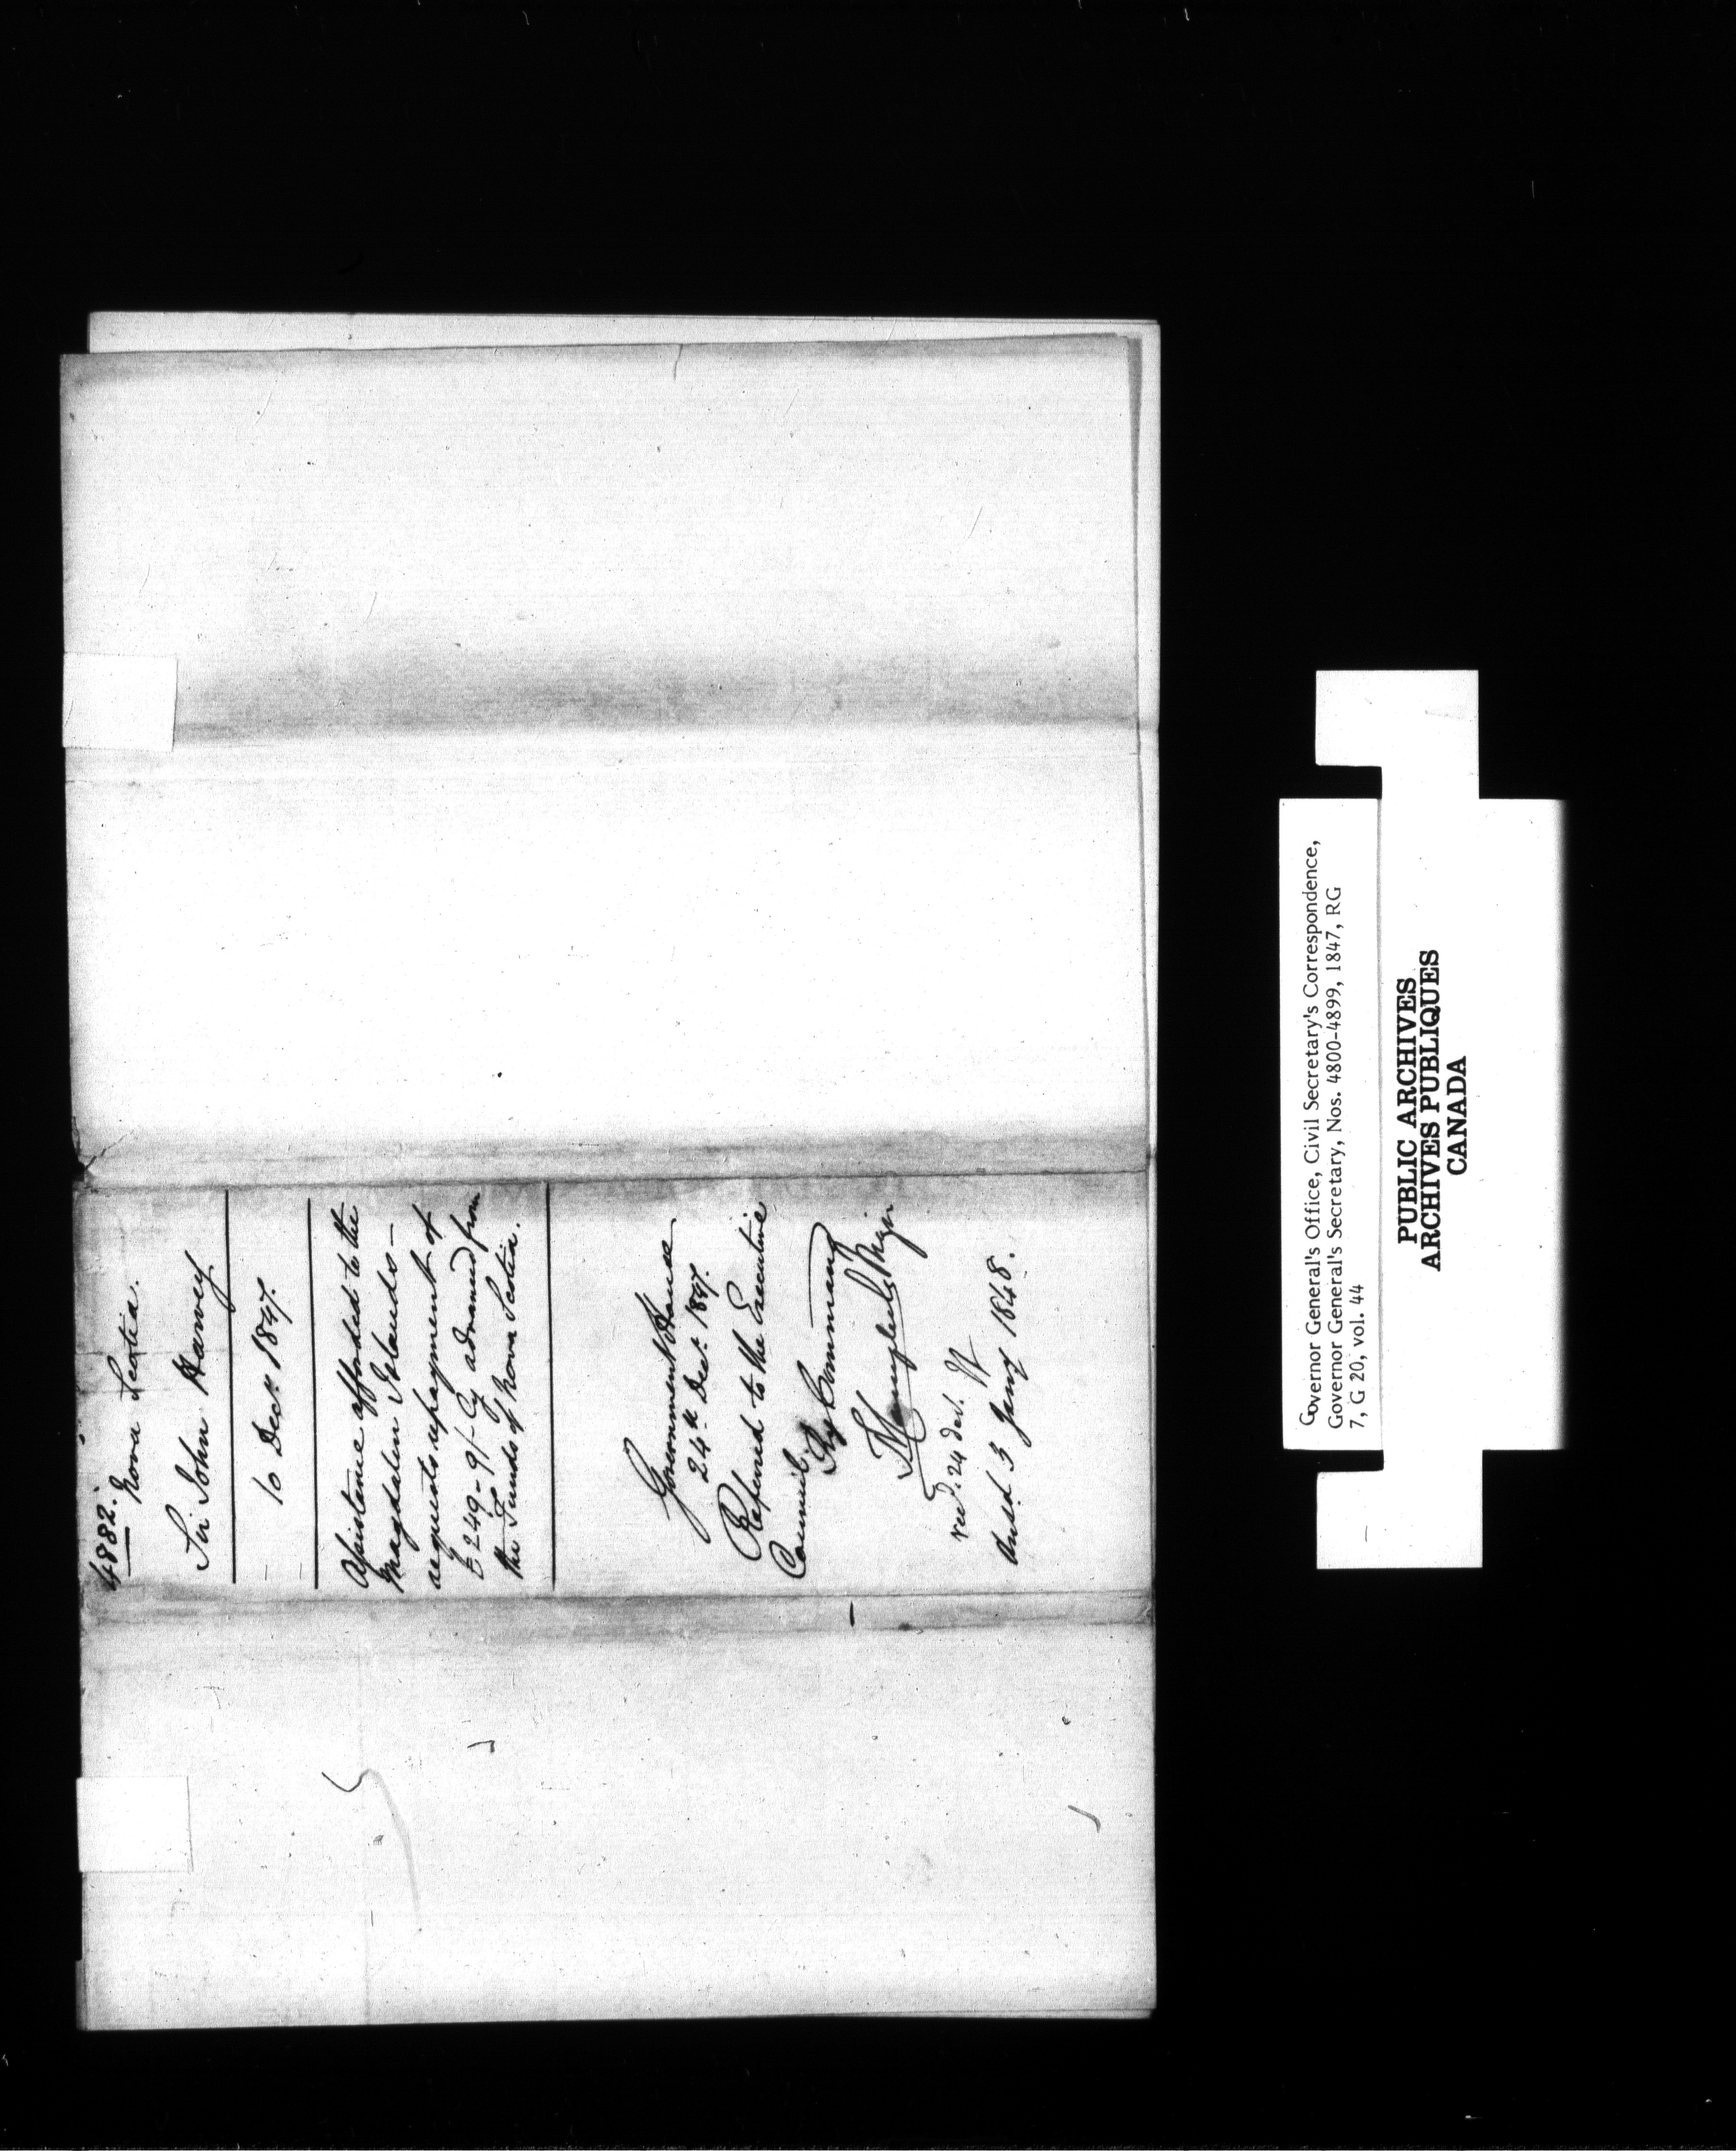 4882.
Nova Scotia.
Sir John Harvey
10 Decr 1847.
Assistance afforded to the
Magdalen Islands —
requests repayment of
£249-9/- Cy advanced from
the Funds of Nova Scotia.
Government House
24th Decr 1847.
Referred to the Executive
Council.
By Command
recd. 24 Decr.
Ansd 3 Jany 1848.
Governor General's Office, Civil Secretary's Correspondence,
Governor General's Secretary, Nos. 4800-4899, 1847, RG
7, G 20, vol. 44
PUBLIC ARCHIVES
ARCHIVES PUBLIQUES
CANADA